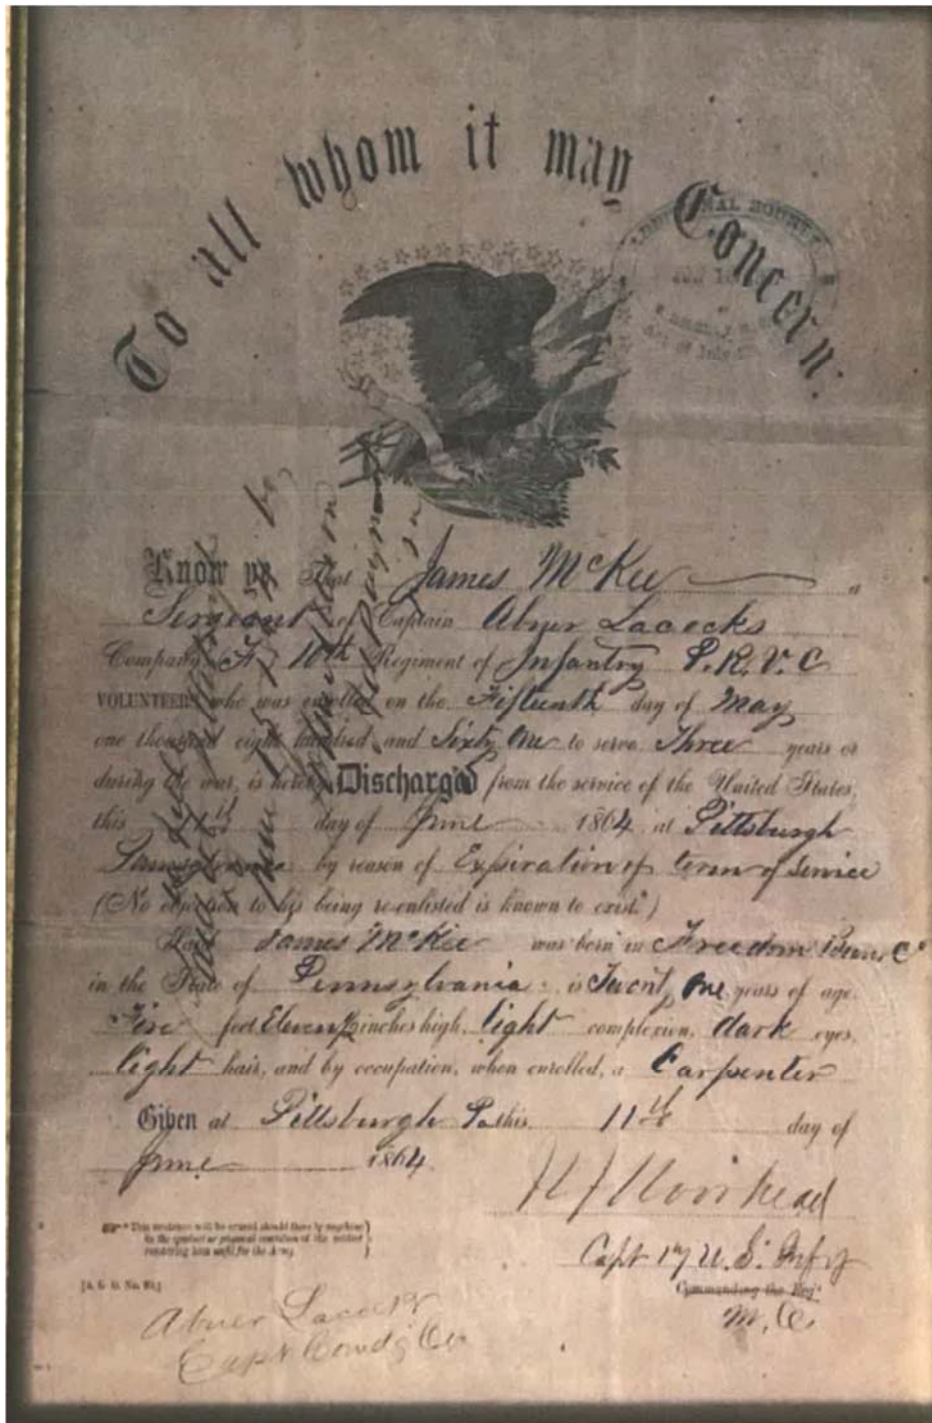 To all whom it may Concern:
NAL BOUNTY
Act of July
Know ye, That James McKee a
Sergeant of Captain Abner Lacocks
Company, 10th Regiment of Infantry P.R.V.C
VOLUNTEERS who was enrolled on the Fifteenth day of May
one thousand eight hundred and Sixty One to serve Three years or
during the war, is hereby Discharged from the service of the United States,
this 11th day of June 1864, at Pittsburgh
Pennsylvania by reason of Expiration of term of Service
(No objection to his being re-enlisted is known to exist.*)
Said James McKee was born in Freedom C°
in the State of Pennsylvania, is Twenty One years of age,
Five feet Eleven inches high, light complexion, dark eyes,
light hair, and by occupation, when enrolled, a Carpenter
Given at Pittsburgh Pa this 11th day of
June 1864.
* This sentence will be erased should there be anything
in the conduct or physical condition of the soldier
rendering him unfit for the Army.
[A. G. O. No. 99.]
Moorhead
Capt 17 U.S. Infy
Commanding the Reg't
M.
Abner Lacock
Capt Comdg Co
June 15